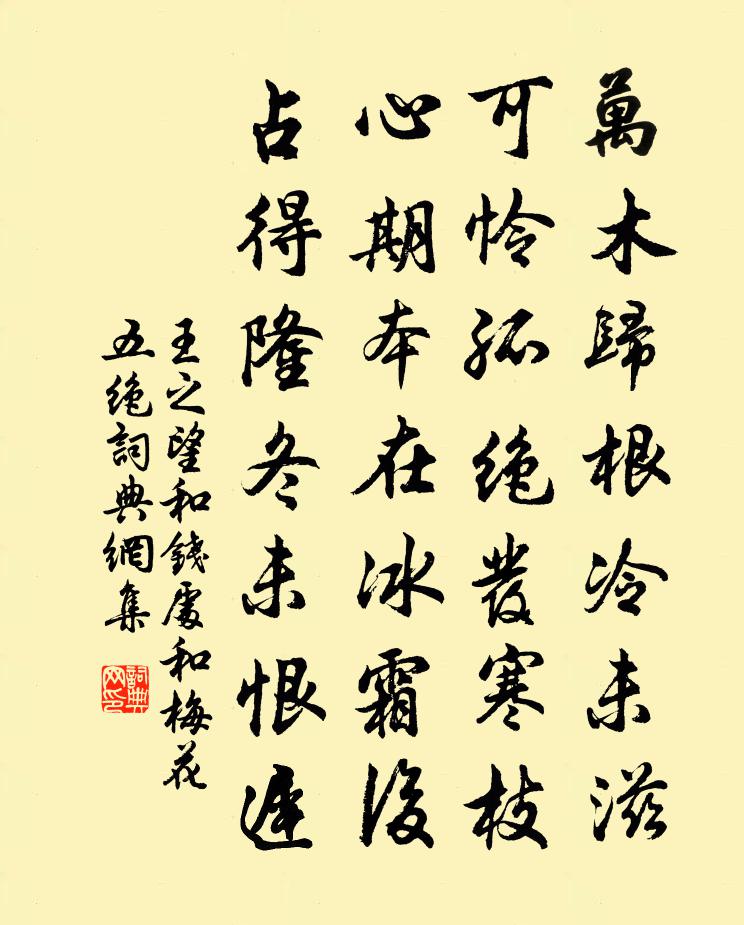 萬木歸根冷未滋
可憐孤絶發寒枝
心期本在冰霜後
占得隆冬未恨遲
王之望和錢處和梅花
五絶詞典網集
詞典
网印